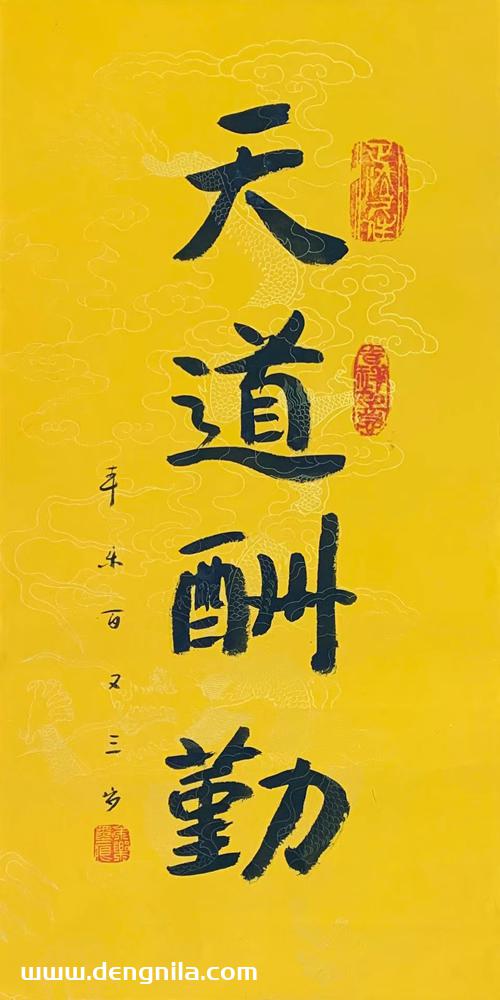 天道酬勤
百又三岁
www.dengnila.com